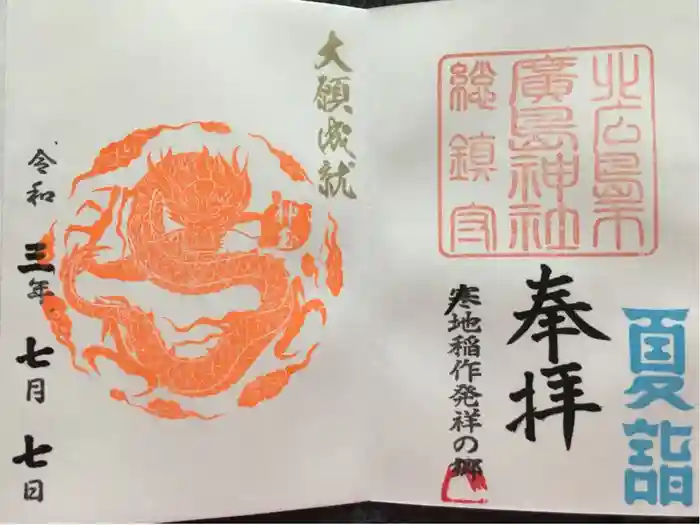 夏詣
北広島市
廣島神社
総鎮守
奉拝
寒地稲作発祥の郷
大願成就
令和三年七月七日